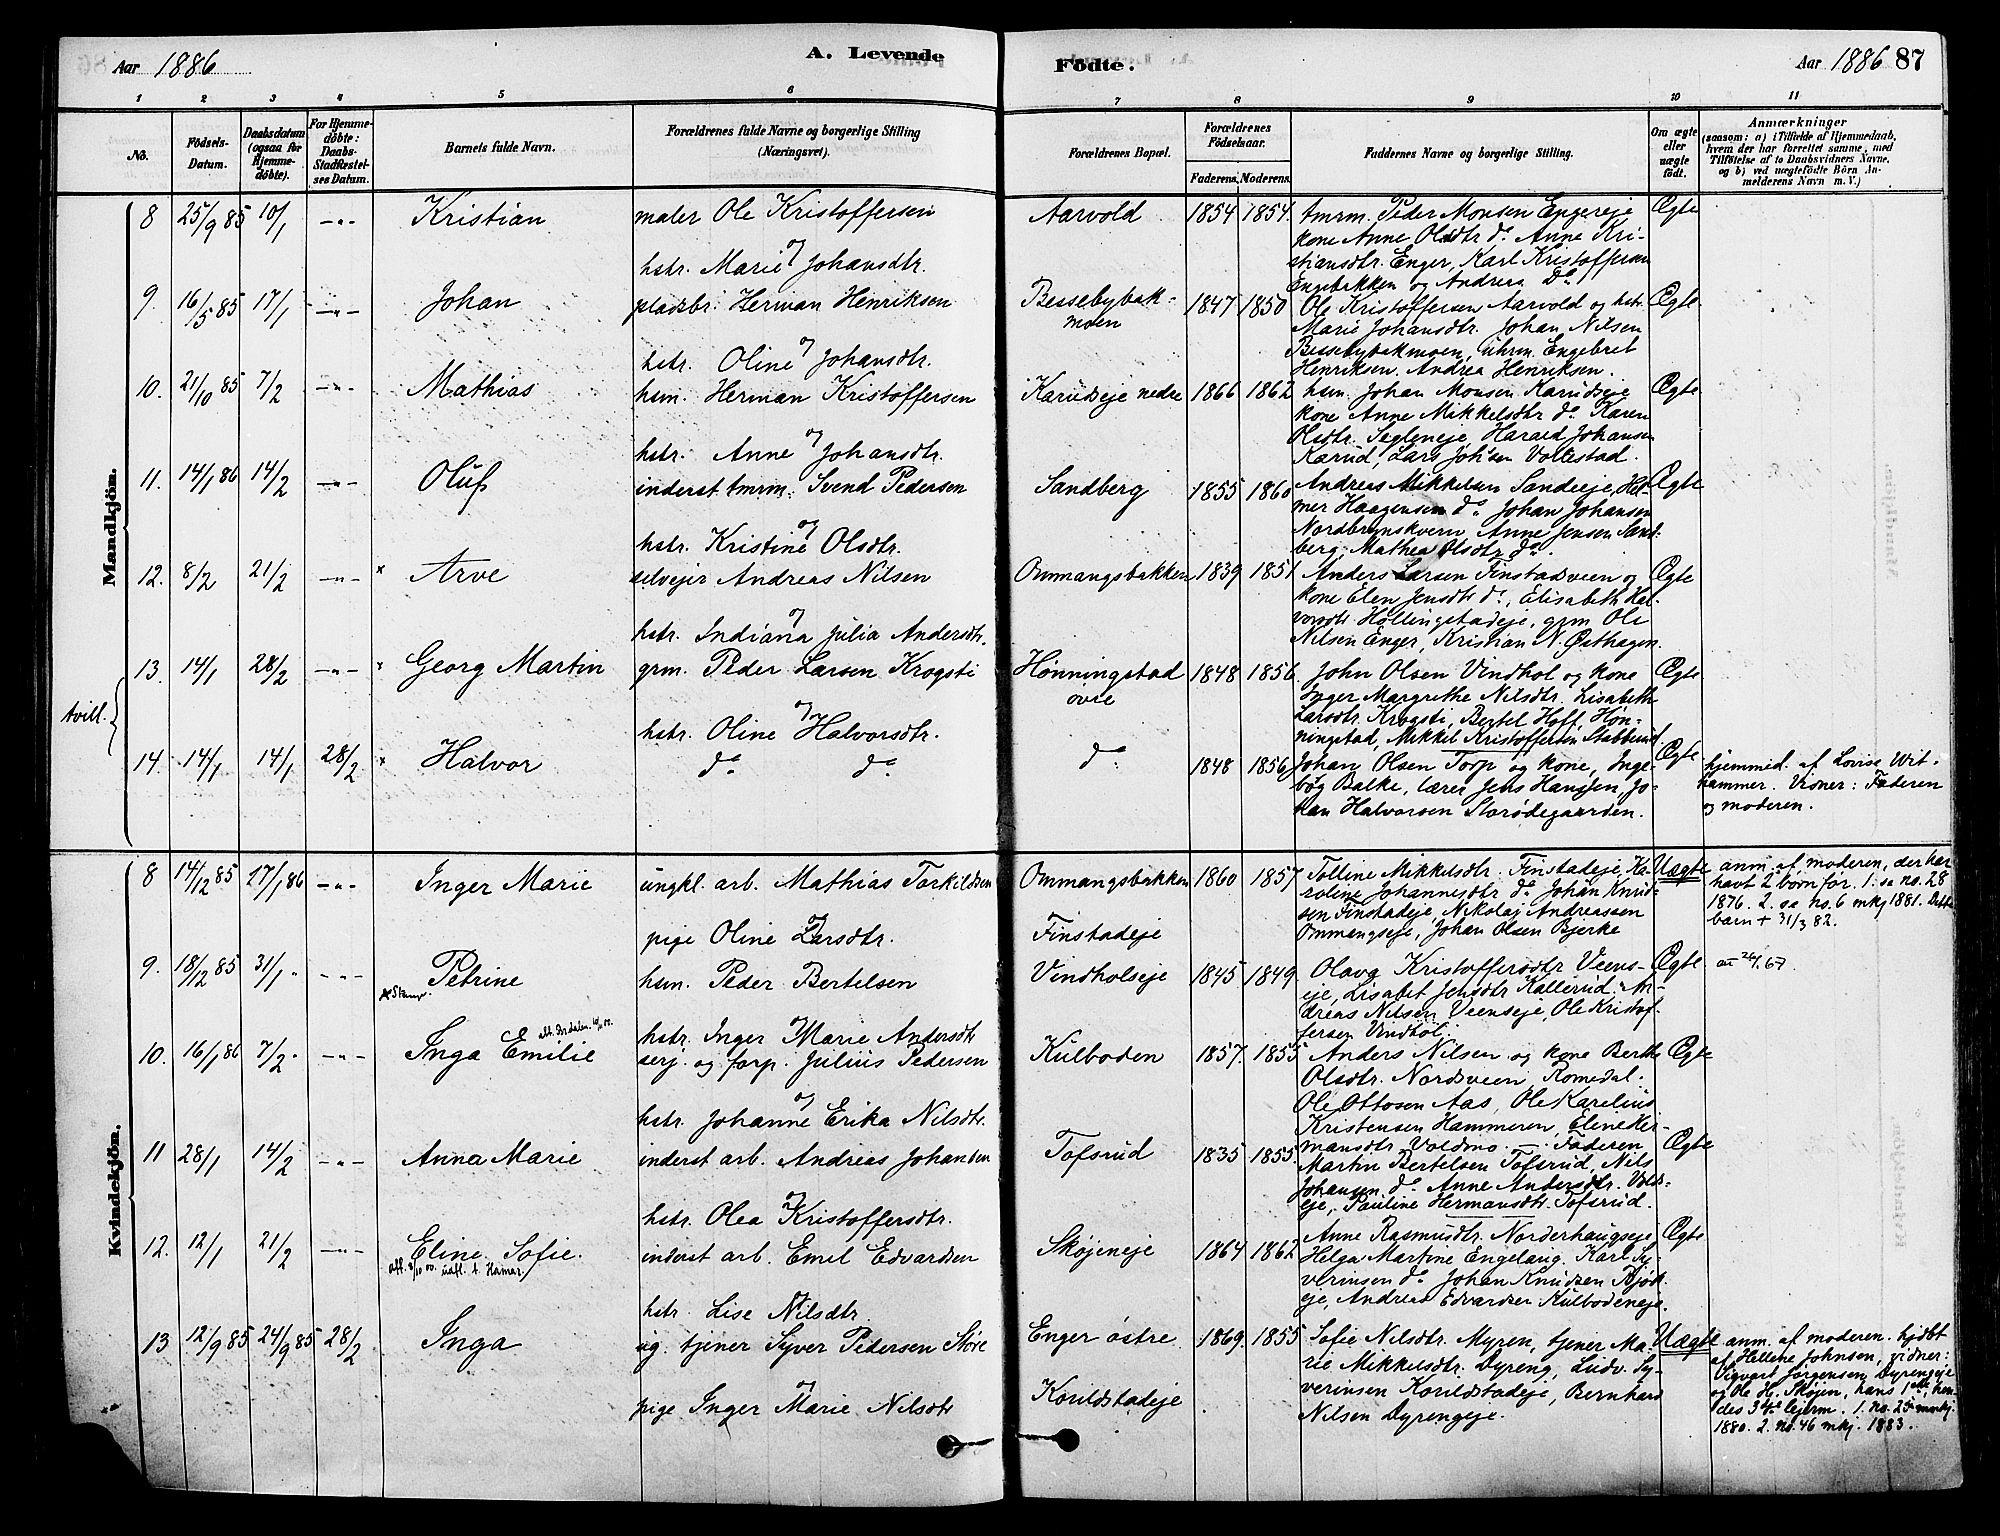 Aar 1886
A. Levende
Födte.
Aar 1886 87
1 2 3 4 5 6 7 8 9 10 11
No.
Födsels-Datum.
Daabsdatum (ogsaa for Hjemme-döbte).
For Hjemme-döbte: Daabs-Stadfæstel-ses Datum.
Barnets fulde Navn.
Forældrenes fulde Navne og borgerlige Stilling (Næringsvei).
Forældrenes Bopæl.
Forældrenes Födselsaar.
Faderens. Moderens.
Faddernes Navne og borgerlige Stilling.
Om ægte eller uægte födt.
Anmærkninger
(saasom: a) i Tilfælde af Hjemmedaab,
hvem der har forrettet samme, med
Tilföielse af to Daabsvidners Navne,
og b) ved uægtefödte Börn An-
melderens Navn m. V.)
Mandkjön.
8 25/9 85 10/1 -„- Kristian maler Ole Kristoffersen
og
hstr. Marie Johansdtr.
Aarvold 1854 1854. tmrm. Peder Monsen Engereje
kone Anne Olsdtr do Anne Kri-
stiansdtr. Enger, Karl Kristoffersen
Engebakken og Andrea Do
Ægte
9. 16/5 85 17/1 -„- Johan pladsbr. Herman Henriksen
og
hstr. Oline Johansdtr.
Bessebybak-
moen 1847 1850 Ole Kristoffersen Aarvold og hstr.
Marie Johansdtr. Johan Nilsen
Bessebybakmoen, uhrm. Engebret
Henriksen. Andrea Henriksen.
Ægte
10. 21/10 85 7/2 -„- Mathias hsm. Herman Kristoffersen
og
hstr. Anne Johansdtr.
Karudseje nedre 1866 1862 hsm. Johan Monsen Karudseje
kone Anne Mikkelsdtr do Karen
Olsdtr. Segleneje, Harald Johansen
Karud, Lars Joh'sen Vollestad.
Ægte
11. 14/1 86 14/2 -„- Oluf inderst tmrm. Svend Pedersen
og
hstr. Kristine Olsdtr.
Sandberg 1855 1860 Andreas Mikkelsen Sandeeje, Hel-
mer Haagensen do Johan Johansen
Nordbrynskvern Anne Jensen Sand-
berg, Mathea Olsdtr do.
Ægte
12. 8/2 21/2 -„- x Arve selvejer Andreas Nilsen
og
hstr. Indiana Julia Andersdtr.
Ommangsbakken 1839 1851 Anders Larsen Finstadsveen og
kone Elen Jensdtr do, Elisabeth Hal-
vorsdtr Hollingstadeje, grm Ole
Nilsen Enger, Kristian N. Østhagen.
Ægte
tvill.
13. 14/1 28/2 -„- x Georg Martin grm. Peder Larsen Krogsti
og
hstr. Oline Halvorsdtr.
Hønningstad
øvre 1848 1856 John Olsen Vindhol og kone
Inger Margrethe Nilsdtr, Lisabeth
Larsdtr. Krogsti, Bertel Hoff, Høn-
ningstad, Mikkel Kristoffersen Stabberud.
Ægte
14. 14/1 14/1 28/2 x Halvor do do do 1848 1856 Johan Olsen Torp og kone, Inge-
bøg Balke, lærer Jens Hanssen, Jo-
han Halvorsen Storødegaarden.
Ægte hjemmed. af Lovise Wit-
hammer. Vidner: Faderen
og moderen.
Kvindekjön.
8 14/12 85 17/1 86 -„- Inger Marie ungkl. arb. Mathias Torkildsen
og
pige Oline Larsdtr.
Ommangsbakken
Finstadeje 1860 1857 Tolline Mikkelsdtr. Finstadeje, Ka-
roline Johannesdtr do Johan Knud-
sen Finstadeje, Nikolaj Andreassen
Ommangseje, Johan Olsen Bjerke
Uægte anm. af moderen, der har
havt 2 børn før. 1: se no. 28
1876. 2. se no. 6 mkj 1881. Dette
barn + 31/3 82.
9. 18/12 85 31/1 -„- Petrine hsm. Peder Bertelsen
og
hstr. Inger Marie Andersdtr
Vindholseje 1845 1849 Olava Kristoffersdtr Veens-
eje, Lisabet Jensdtr Kallerud. An-
dreas Nilsen Veenseje, Ole Kristof-
fersen Vindhol.
Ægte
10. 16/1 86 7/2 -„- Inga Emilie serj. og forp. Julius Pedersen
og
hstr. Johanne Erika Nilsdtr.
Kulboden 1857. 1855 Anders Nilsen og kone Berthe
Olsdtr. Nordsveen, Romedal.
Ole Ottosen Aas, Ole Karelius
Kristensen Hammeren, Elene Her-
mansdtr. Voldmo. — Faderen
Ægte
11 28/1 14/2 -„- Anna Marie inderst arb. Andreas Johansen
og
hstr. Olea Kristoffersdtr.
Tofsrud 1835 1855 Martin Bertelsen Tofsrud, Nils
Johansen do Anne Andersdtr. Volds-
eje, Pauline Hermansdtr. Tofsrud.
Ægte
12. 12/1 21/2 -„- Eline Sofie. inderst arb. Emil Edvardsen
hstr. Lise Nilsdtr
Skøjeneje 1864 1862 Anne Rasmusdtr. Norderhaugseje
Helga Martine Engelaug. Karl Sy-
verinsen do Johan Knudzen Bjødt-
eje, Andreas Edvardsen Kulbodeneje.
Ægte
13 12/9 85 24/9 85 28/2 Inga ug. tjener Syver Pedersen Støre
og
pige Inger Marie Nilsdtr
Enger østre
Korildstadeje 1869. 1855 Sofie Nilsdtr. Myren, tjener Ma-
rie Mikkelsdtr. Dyreng, Ludv. Sy-
verinsen Korildstadeje, Bernhard
Nilsen Dyrengeje.
Uægte anm. af moderen. hjdbt
af Hellene Johnsen, vidner:
Sigvart Jørgensen Dyrengeje
og Ole H. Skøjen, hans 1ste, hen-
des 3die lejerm. 1. no. 25 mkj.
1880. 2. no. 46 mkj. 1883.